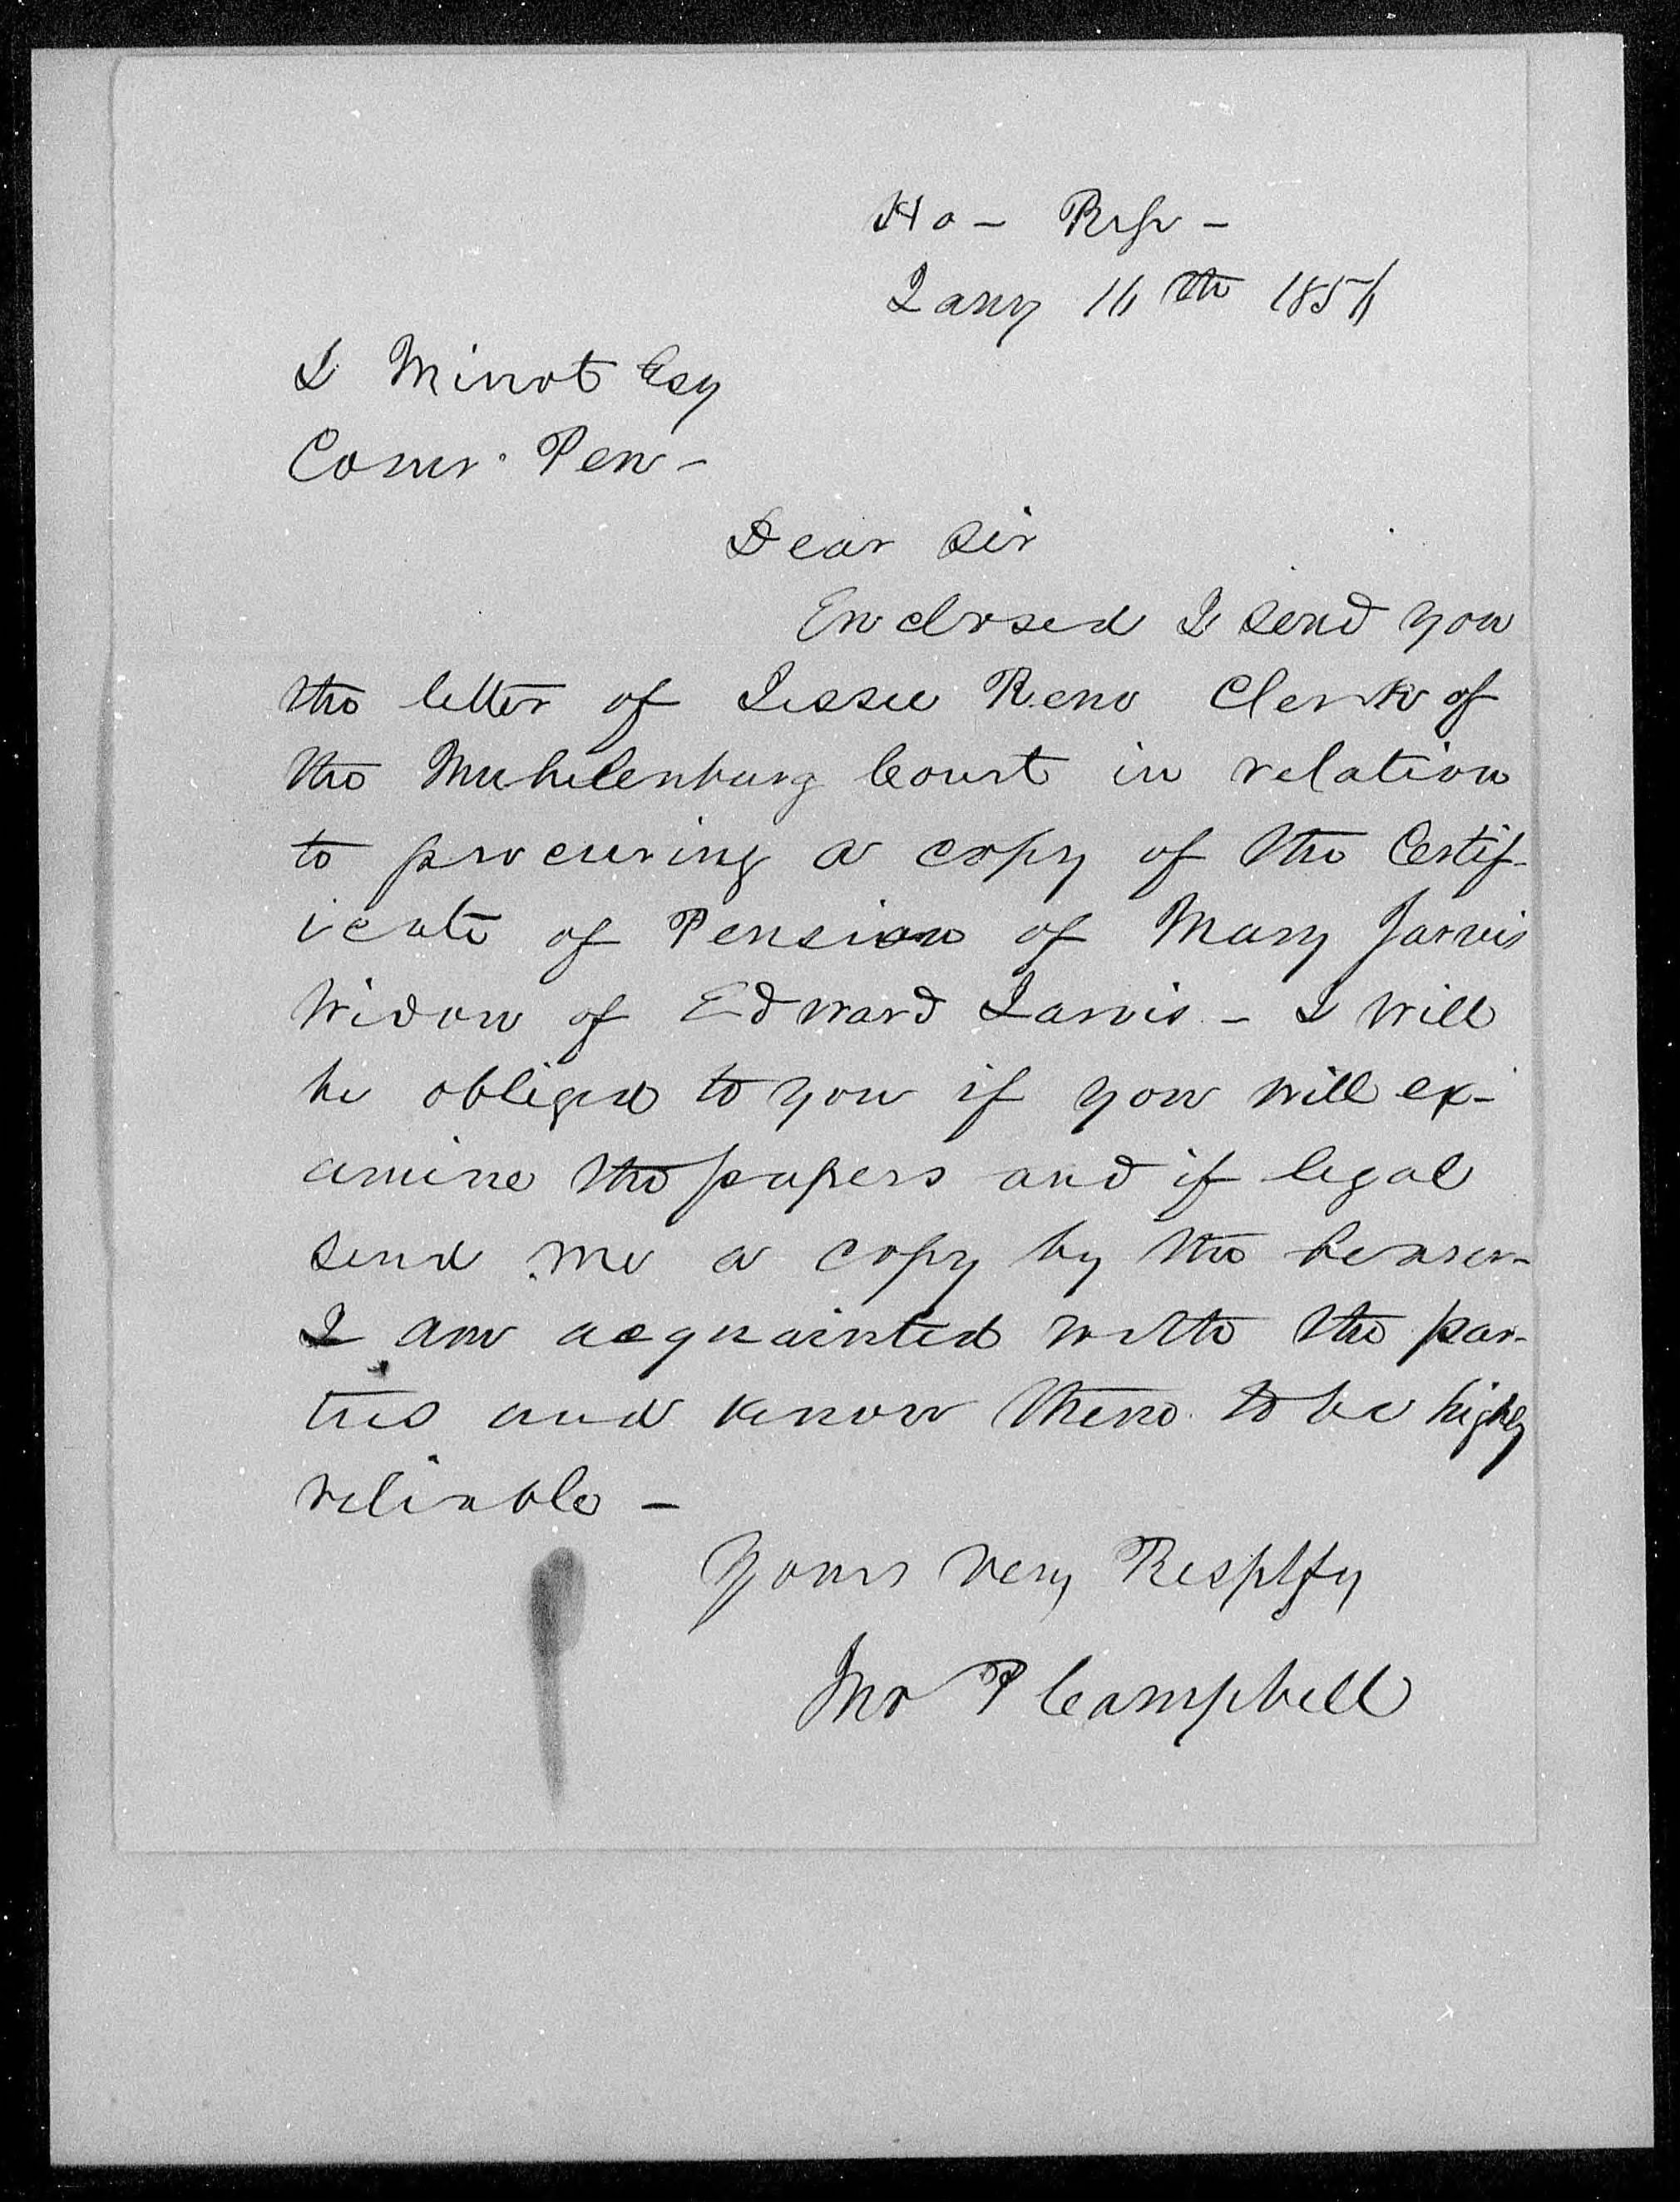 Ho - Rep -
Jany 16th 1856
J Minot Esq
Comr. Pen -
Dear Sir
Enclosed I send you
the letter of Jesse Reno Clerk of
the Muhelenburg Court in relation
to procuring a copy of the Certif-
icate of Pension of Mary Jarvis
Widow of Edward Jarvis - I will
be obliged to you if you will ex-
amine the papers and if legal
send me a copy by the bearer -
I am acquainted with the par-
ties and know them to be highly
reliable -
Yours very Resptfy
Jno P Campbell